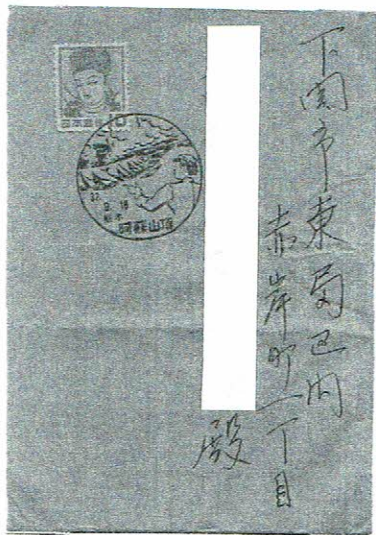 下関市東局区内
赤岸町一丁目
殿
日本郵便
10
阿蘇山頂